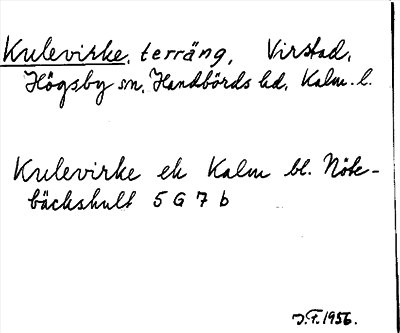 Kulevirke, terräng, Virstad,
Högsby sn, Handbörds hd, Kalm. l.
Kulevirke ek Kalm bl. Nöte-
bäckshult 5 G 7 b
J.F. 1956.